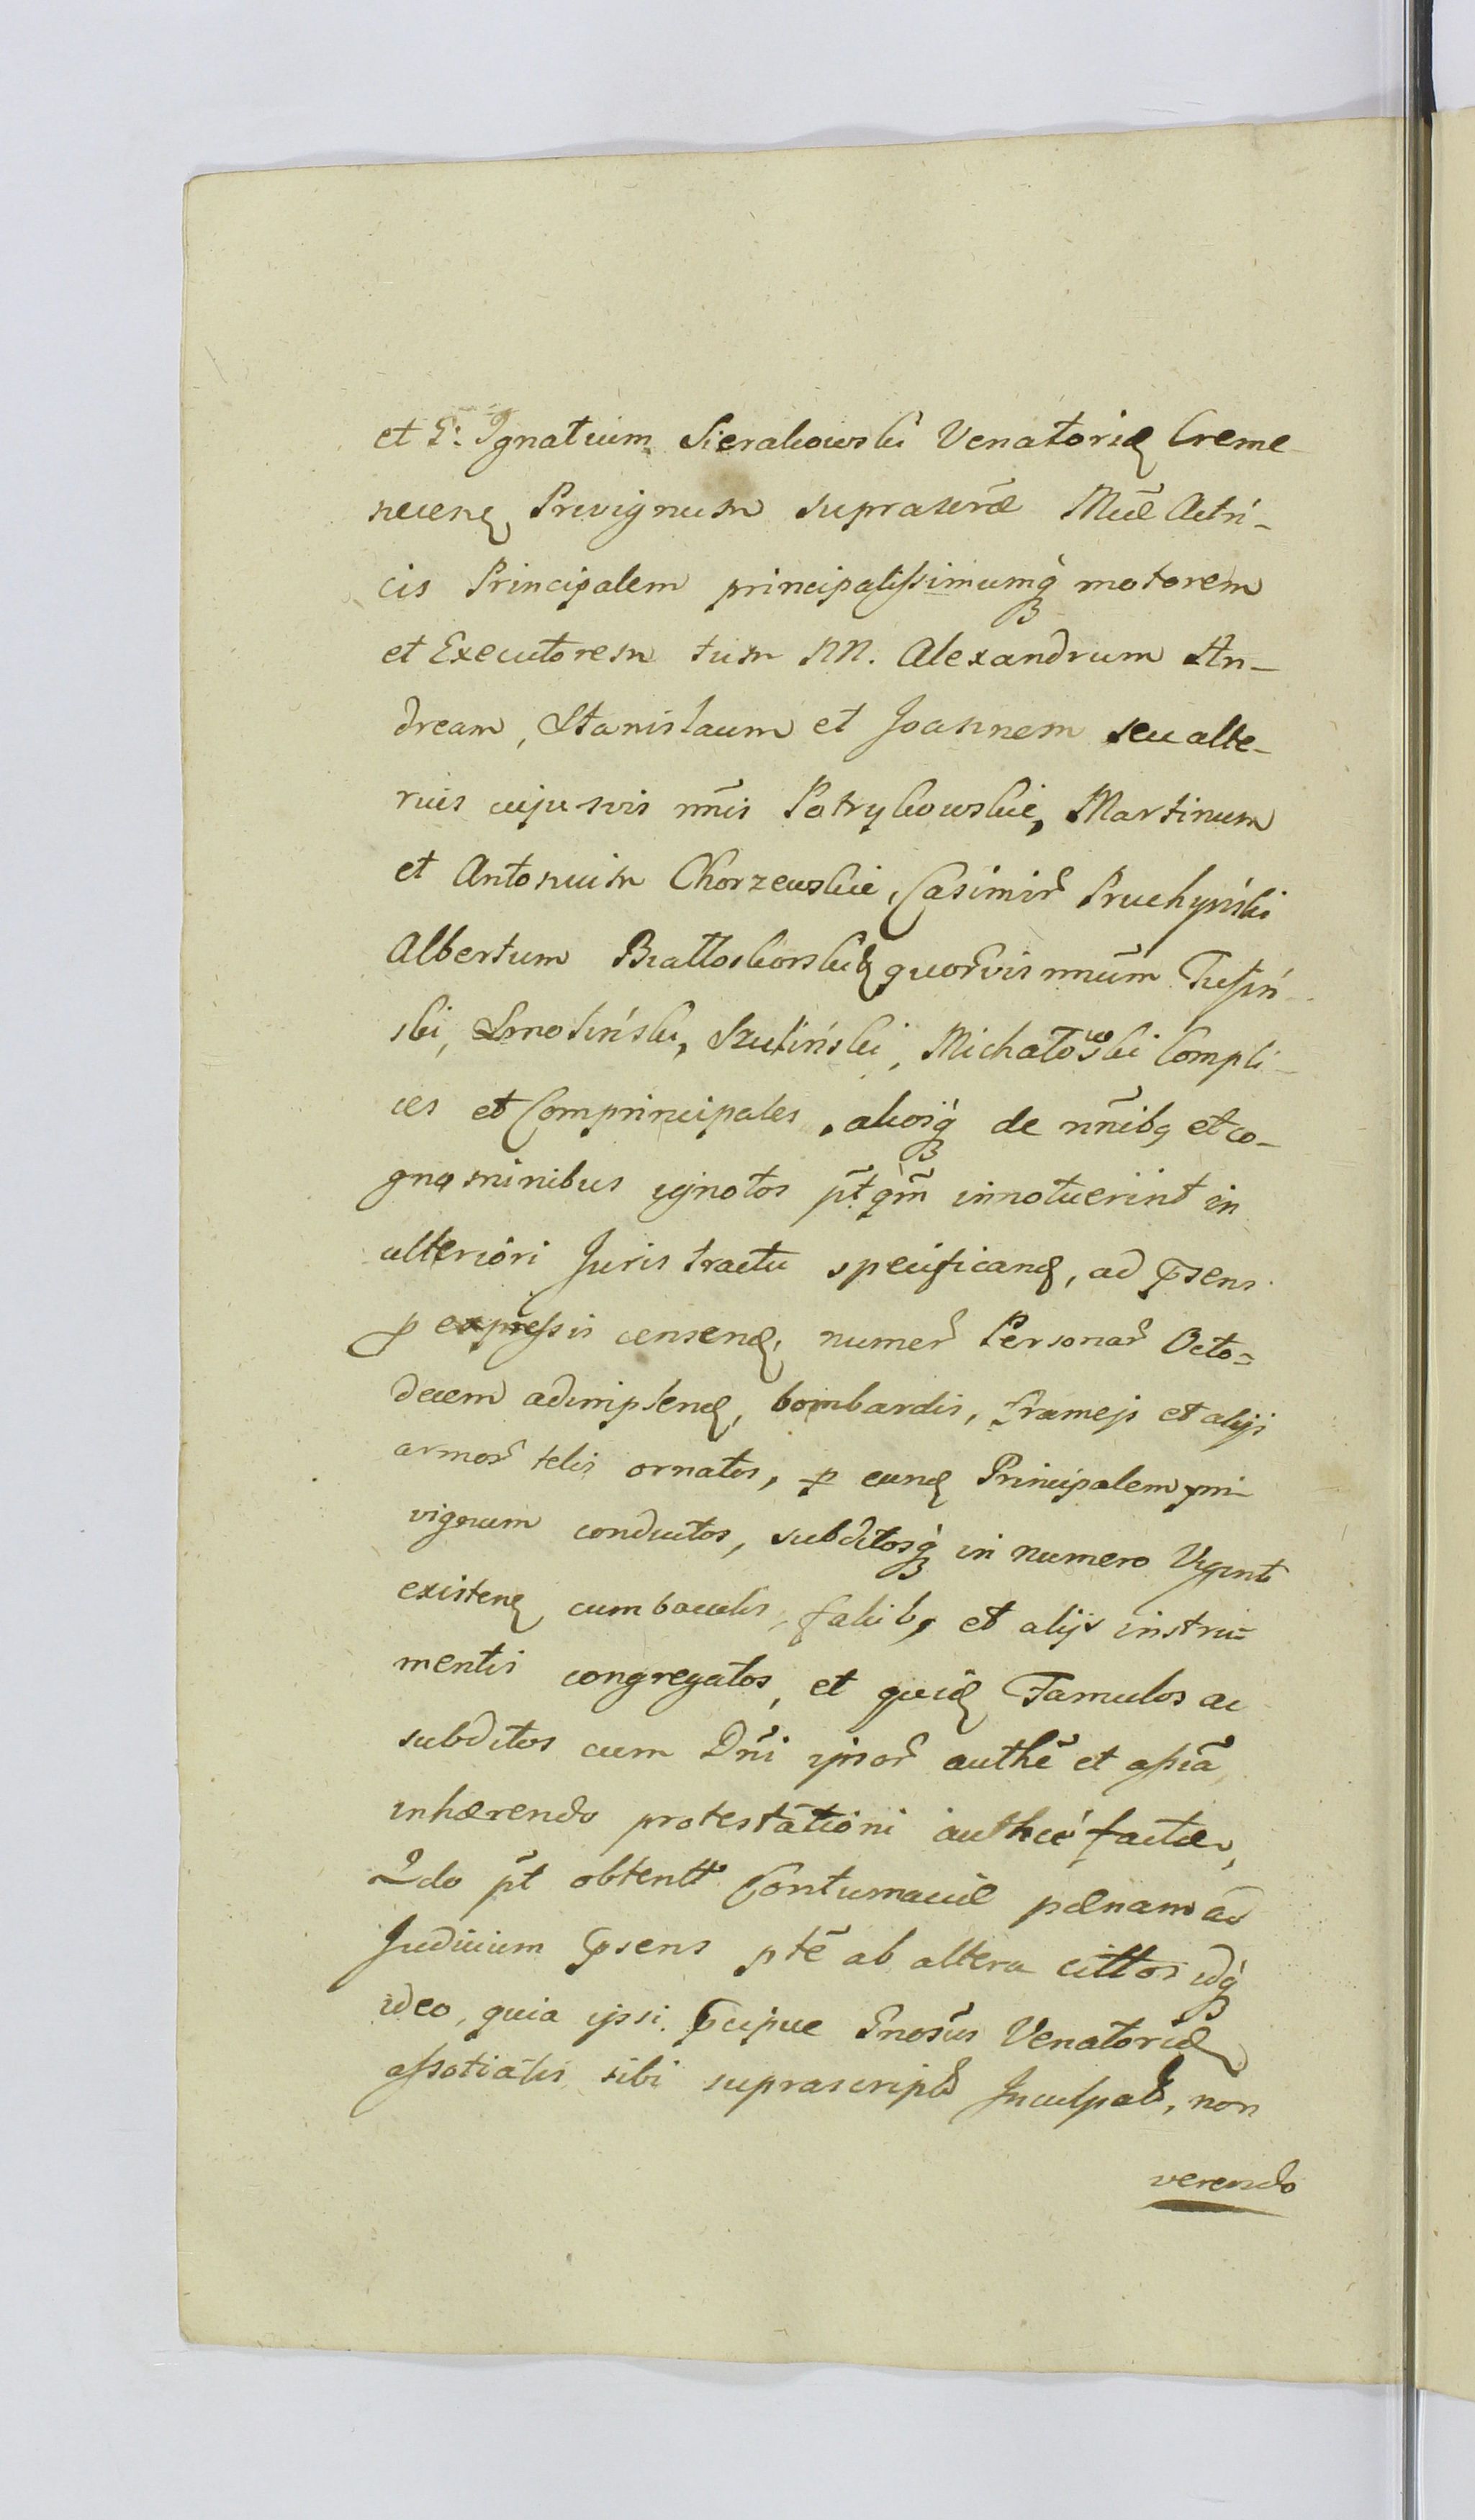 et G: Ignatium Sierakowski Venatorię Creme
necenę Privignum suprascr̃æ Mũæ Actri-
cis Principalem principalissimumq̀ꝫ motorem
et Executorem tum NN. Alexandrum An-
dream, Stanislaum et Joannem seu alte-
rius cujusvis nñis Patrykowskie, Martinum
et Antonium Chorzewskie, Casimir̃ Pruchyński
Albertum Białłoskorski & quor̃vis nnũm Tusiń-
ski, Smoliński, Szuliński, Michałowski Compli-
ces et Comprincipales, aliosq̀ꝫ de nñibꝫ et co-
gnominibus ignotos p̃t qm̃ innotuerint in
ulteriori Juris tractu specificanꝺ, ad p̃sens
ꝑ expressis censenꝺ, numer̃ Personar̃ Octo=
decem adimplenꝺ, bombardis, frameis et alijs
armor̃ telis ornatos, ꝑ eunꝺ Principalem pri-
vignum conductos, subditosq̀ꝫ in numero Viginti
existenꝺ cum baculis, falcibꝫ et alijs instru=
mentis congregatos, et quiꝺ Famulos ac
subditos cum Dñi ipsor̃ authẽ et assiã,
inhærendo protestationi authcé factæ,
2do p̃t obtentt Contumaciæ pænam ad
Judicium p̃sens ptẽ ab altera cittos idq̀ꝫ
ideo, quia ipsi p̃cipue Gnosus Venatoriꝺ
assotiatis sibi suprascriptis Inculpatis, non
verendo